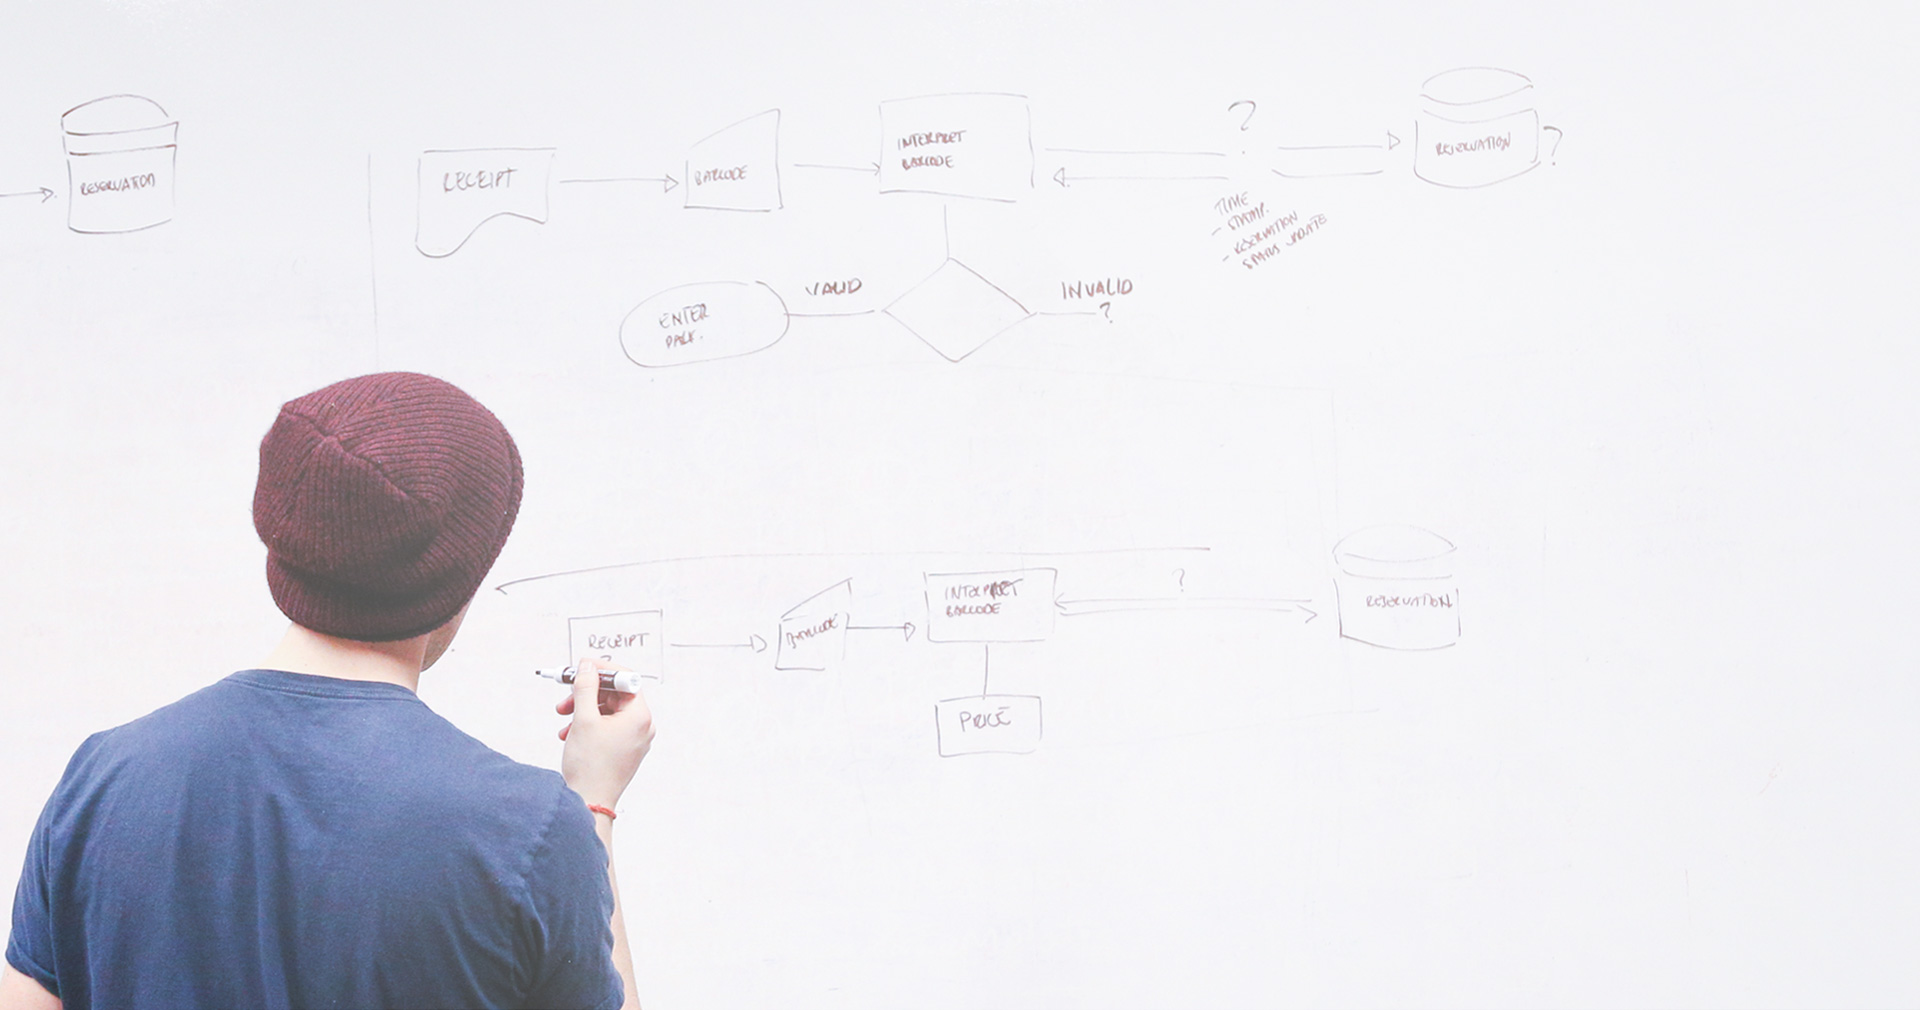 RESERVATION
RECEIPT
BARCODE
INTERPRET
BARCODE
?
RESERVATION
?
TIME
- STAMP.
- RESERVATION
STATUS UPDATE
ENTER
PARK.
VALID
INVALID
?
RECEIPT
?
BARCODE
INTERPRET
BARCODE
?
RESERVATION
PRICE